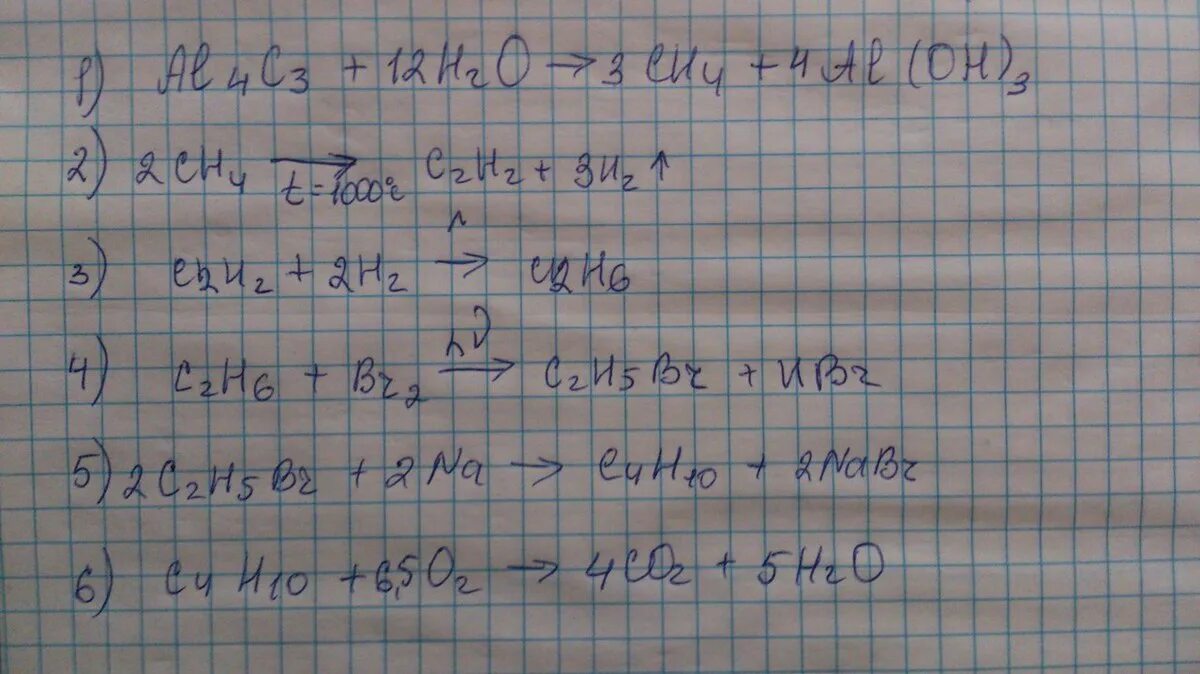 1) Al4C3 + 12H2O → 3CH4 + 4Al(OH)3
2) 2CH4 → t=1000°C C2H2 + 3H2↑
3) C2H2 + 2H2 → C2H6
4) C2H6 + Br2 hν → C2H5Br + HBr
5) 2C2H5Br + 2Na → C4H10 + 2NaBr
6) C4H10 + 6,5O2 → 4CO2 + 5H2O